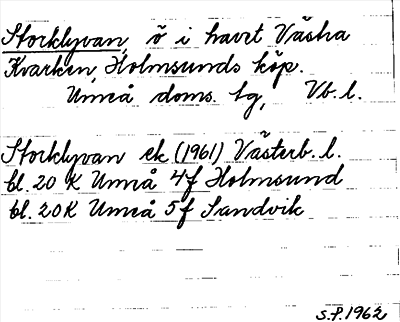 Storklyvan, ö i havet Västra
Kvarken, Holmsunds köp.
Umeå doms. tg, Vb. l.
Storklyvan ek (1961) Västerb. l.
bl. 20 K Umeå 4f Holmsund
bl. 20K Umeå 5f Sandvik
S.P. 1962